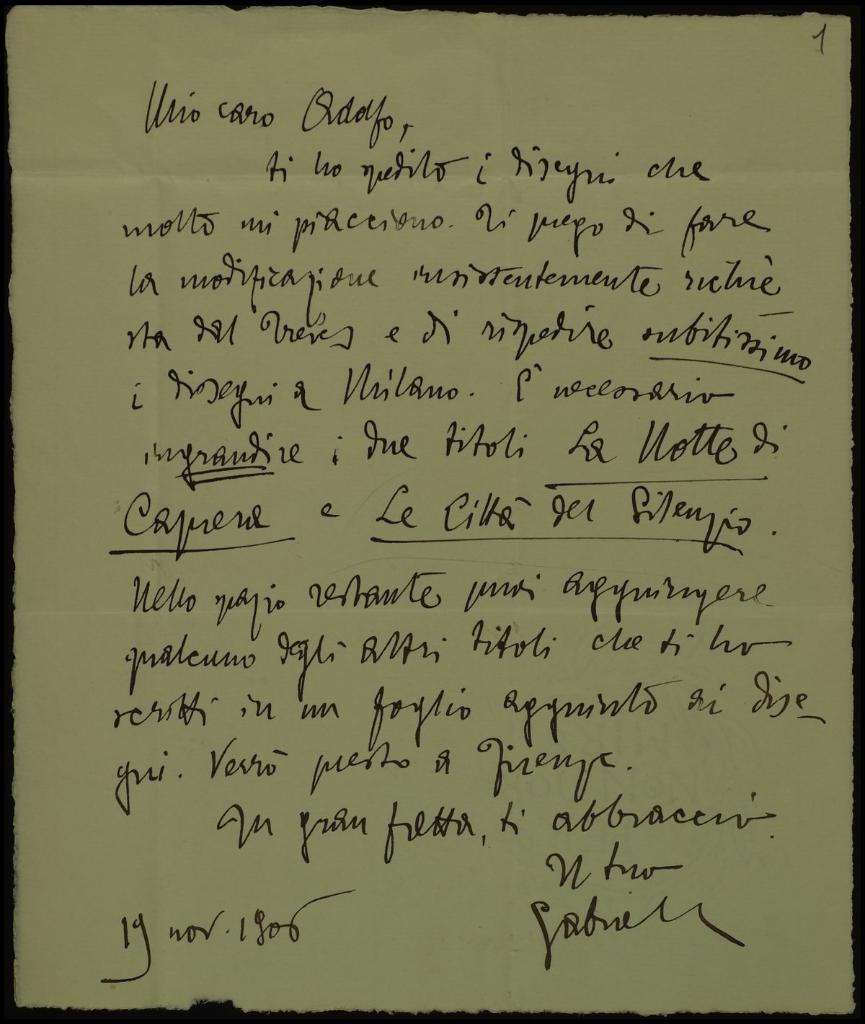 1
Mio caro Adolfo,
ti ho spedito i disegni che
molto mi piacciono. Ti prego di fare
la modificazione insistentemente richie
sta dal Treves e di rispedire subitissimo
i disegni a Milano. È necessario
ingrandire i due titoli La Notte di
Caprera e Le Città del Silenzio.
Nello spazio restante puoi aggiungere
qualcuno degli altri titoli che ti ho
scritti in un foglio aggiunto ai dise_
gni. Verrò presto a Firenze.
In gran fretta, ti abbraccio.
Il tuo
Gabriele
19 nov. 1906